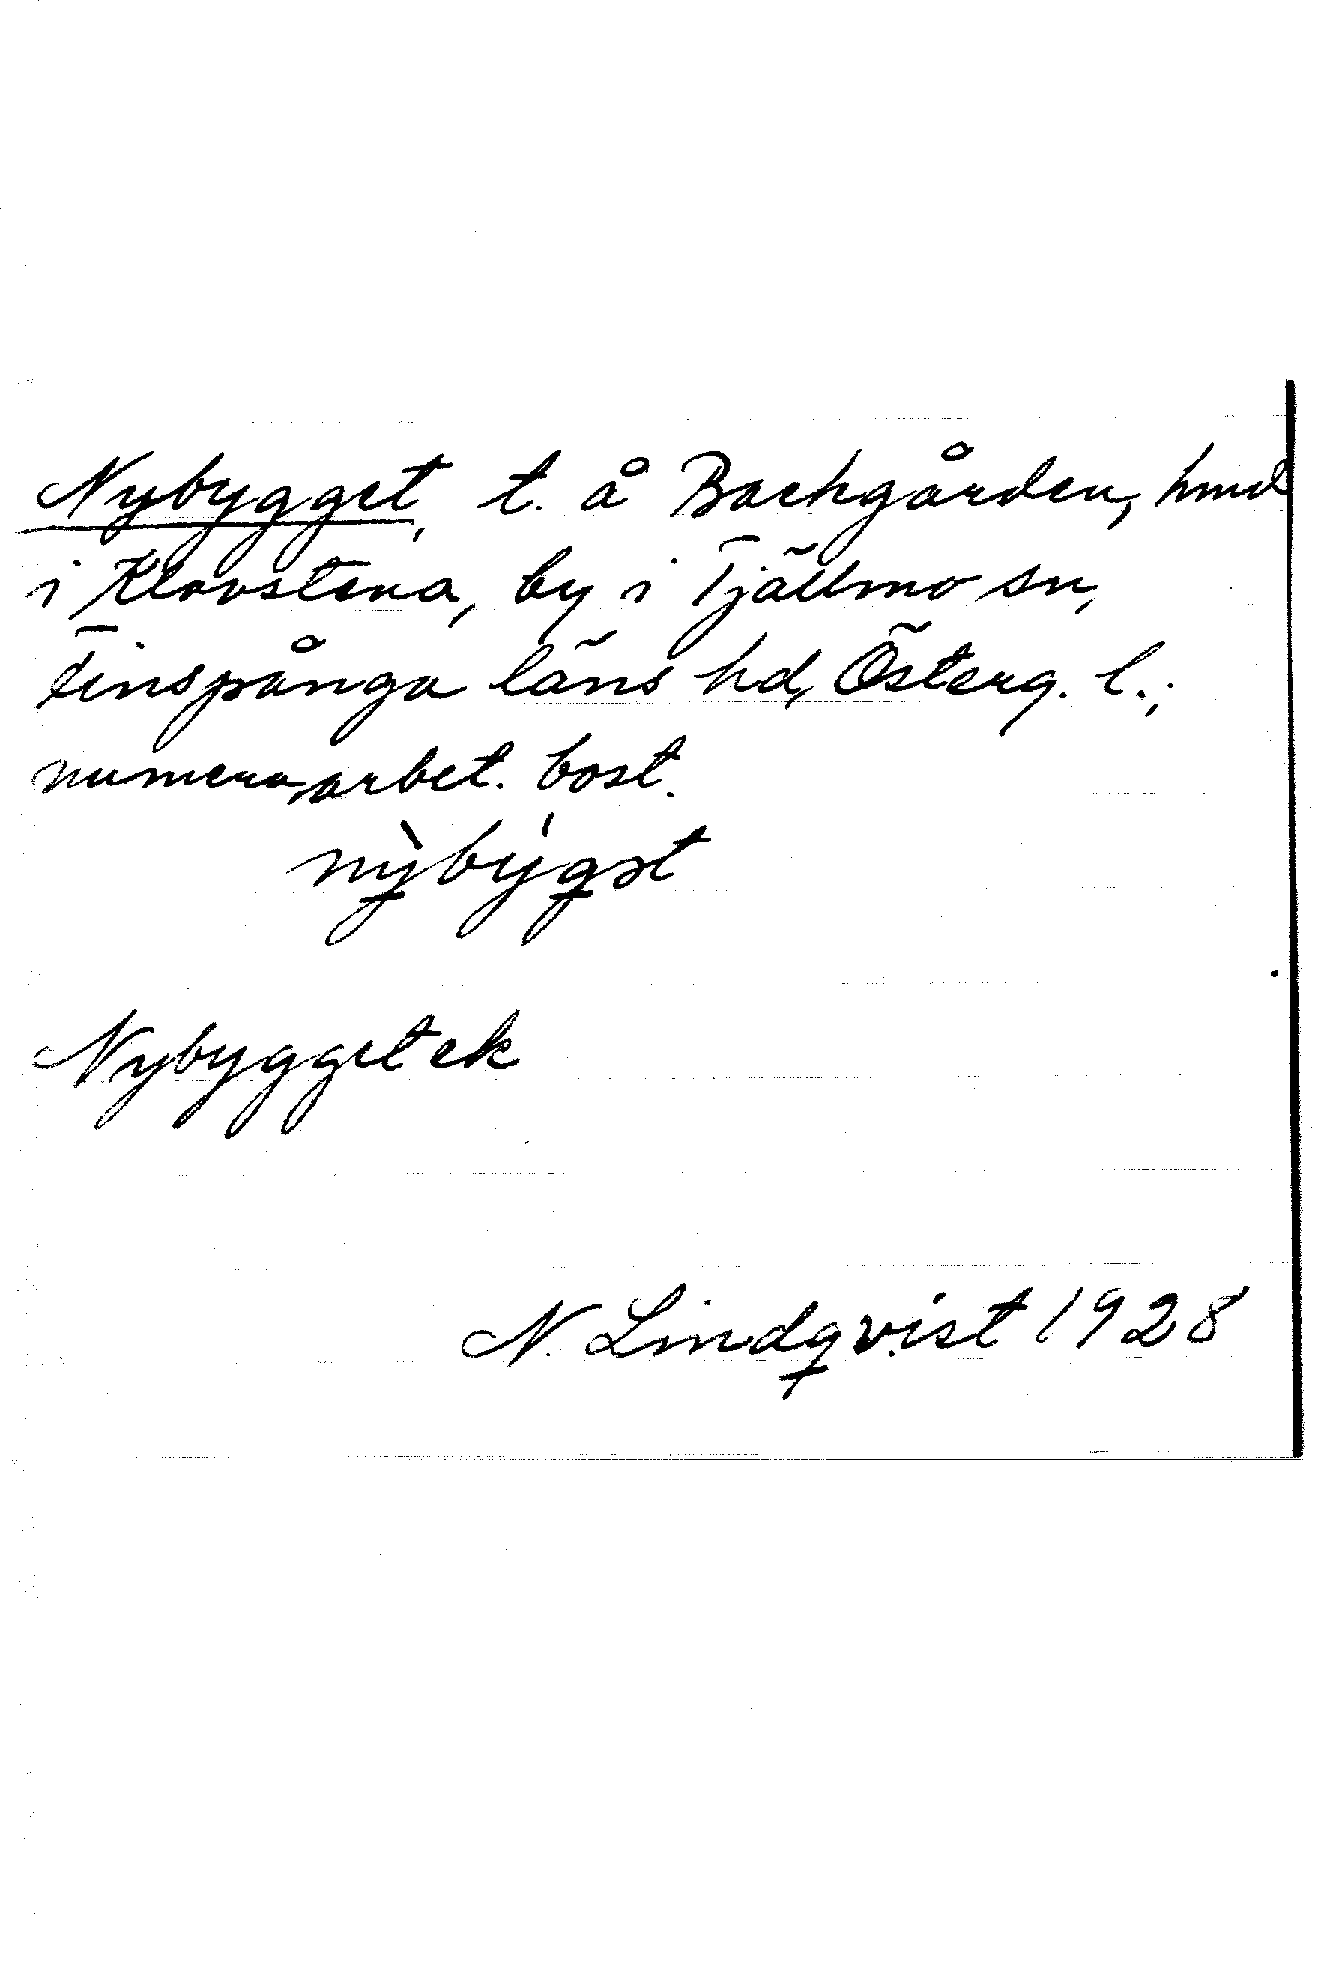 Nybygget, t. å Backgården, hmd
i Klovstena, by i Tjällmo sn,
Finspånga läns hd, Österg. l.;
numera arbet. bost.
nỳbýgət
Nybygget ek
N. Lindqvist 1928